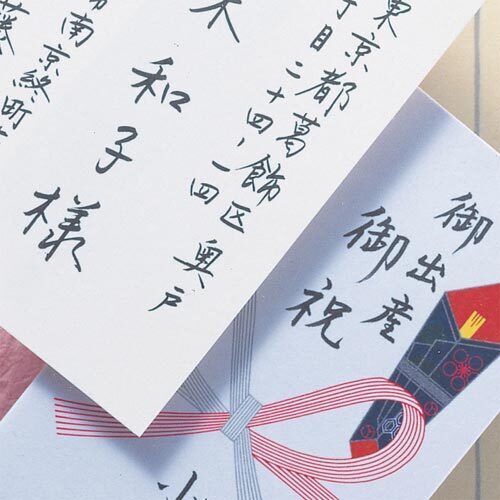 東京都葛飾区奥戸
丁目二十四ノ一四
木和子様
南京終町
藤
御出産
御祝